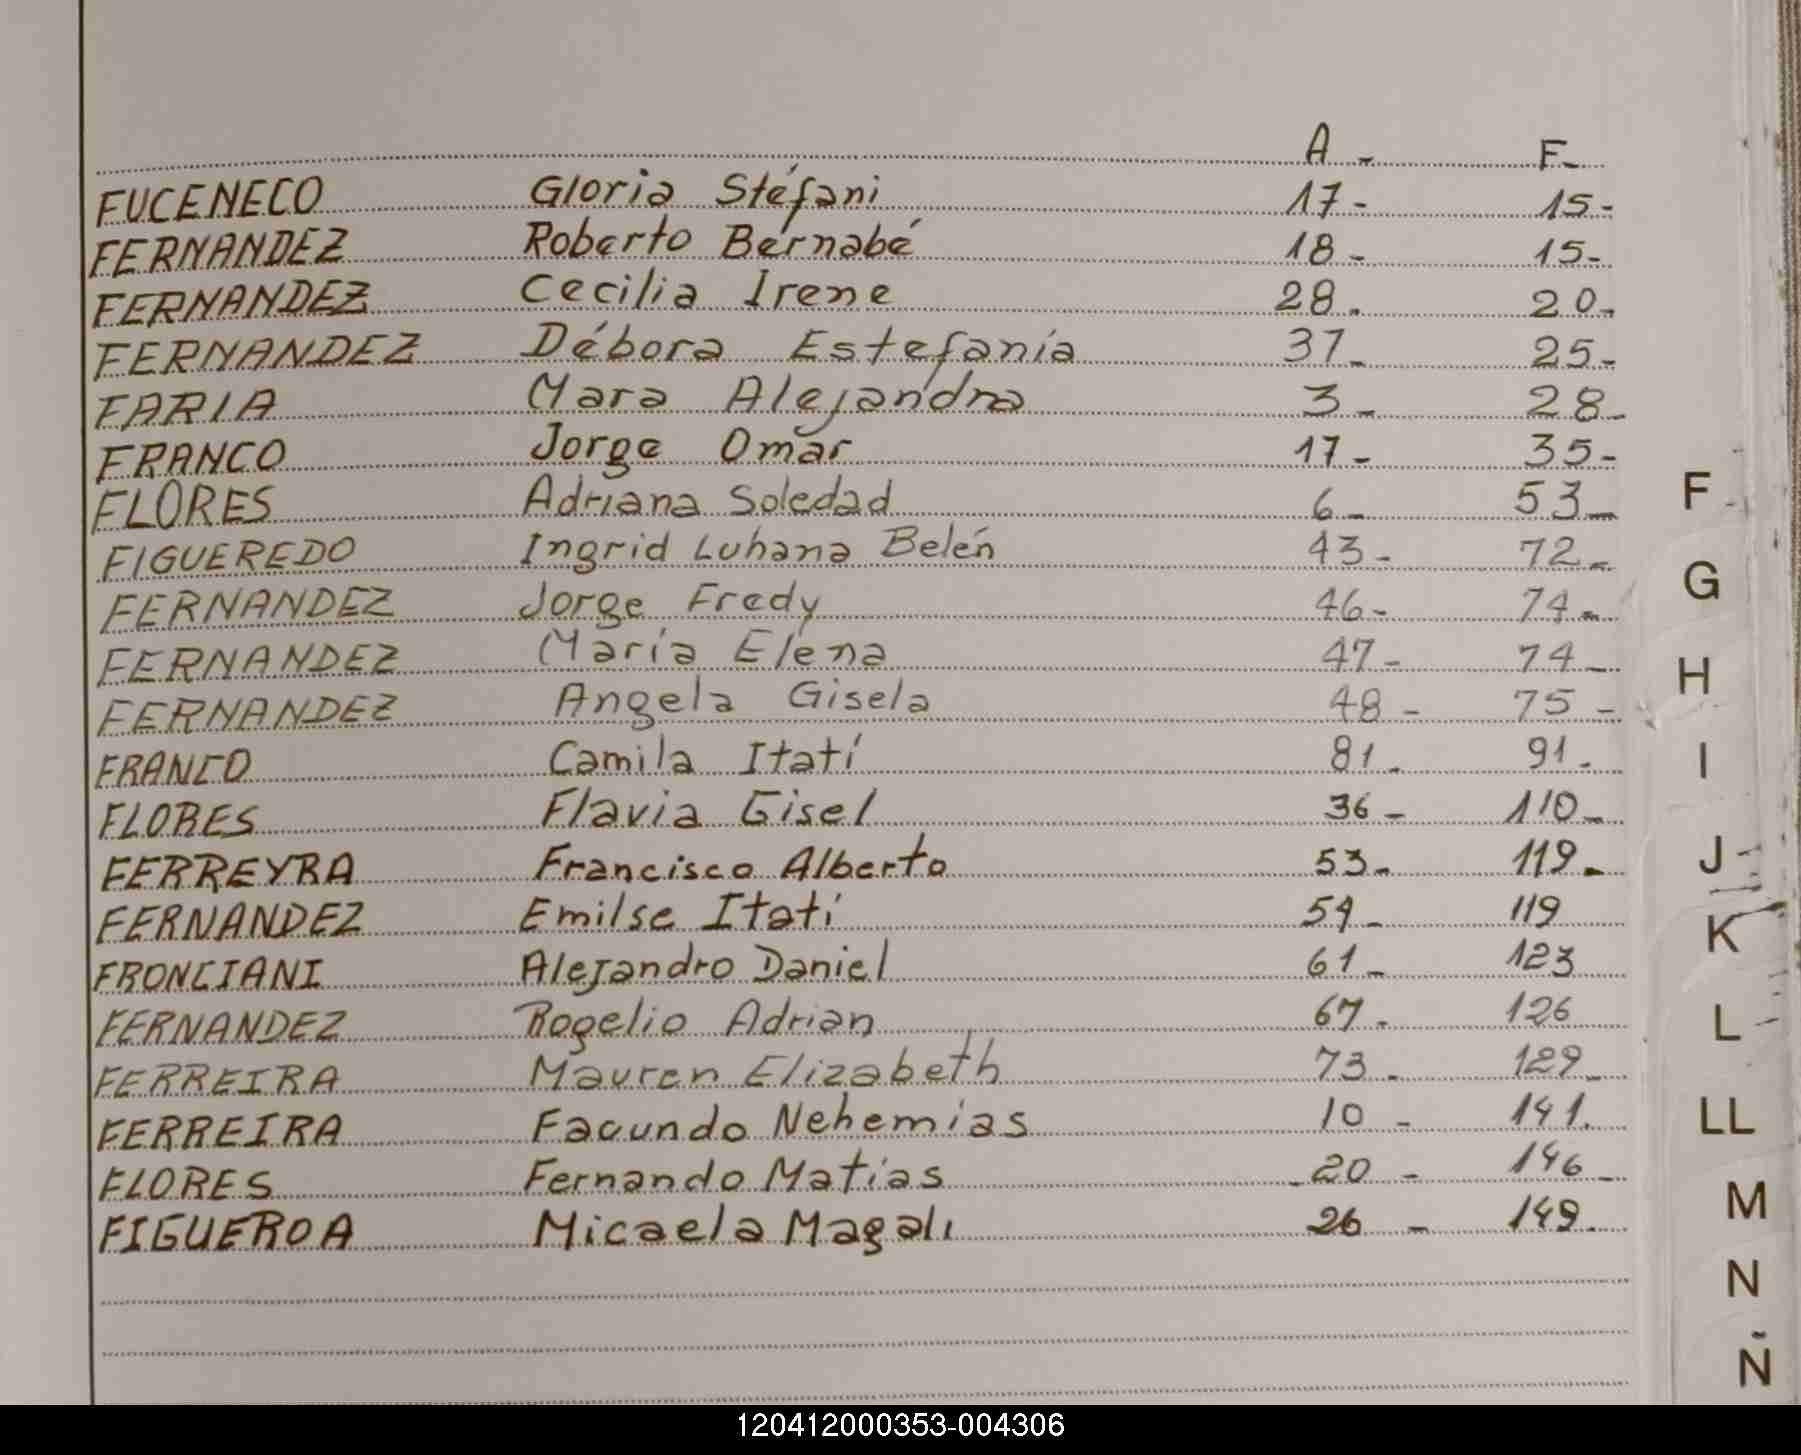 A - F-
FUCENECO Gloria Stéfani 17- 15-
FERNANDEZ Roberto Bernabé 18- 15-
FERNANDEZ Cecilia Irene 28. 20-
FERNANDEZ Débora Estefanía 37- 25-
FARIA Mara Alejandra 3- 28-
FRANCO Jorge Omar 17- 35-
FLORES Adriana Soledad 6- 53-
FIGUEREDO Ingrid Luhana Belén 43- 72-
FERNANDEZ Jorge Fredy 46- 74-
FERNANDEZ María Elena 47- 74-
FERNANDEZ Angela Gisela 48- 75-
FRANCO Camila Itatí 81- 91-
FLORES Flavia Gisel 36- 110-
FERREYRA Francisco Alberto 53- 119-
FERNANDEZ Emilse Itatí 54- 119
FRONCIANI Alejandro Daniel 61- 123
FERNANDEZ Rogelio Adrian 67- 126
FERREIRA Mauren Elizabeth 73- 129-
FERREIRA Facundo Nehemias 10- 141.
FLORES Fernando Matías 20- 146-
FIGUEROA Micaela Magali 26- 149.
F
G
H
I
J
K
L
LL
M
N
Ñ
120412000353-004306